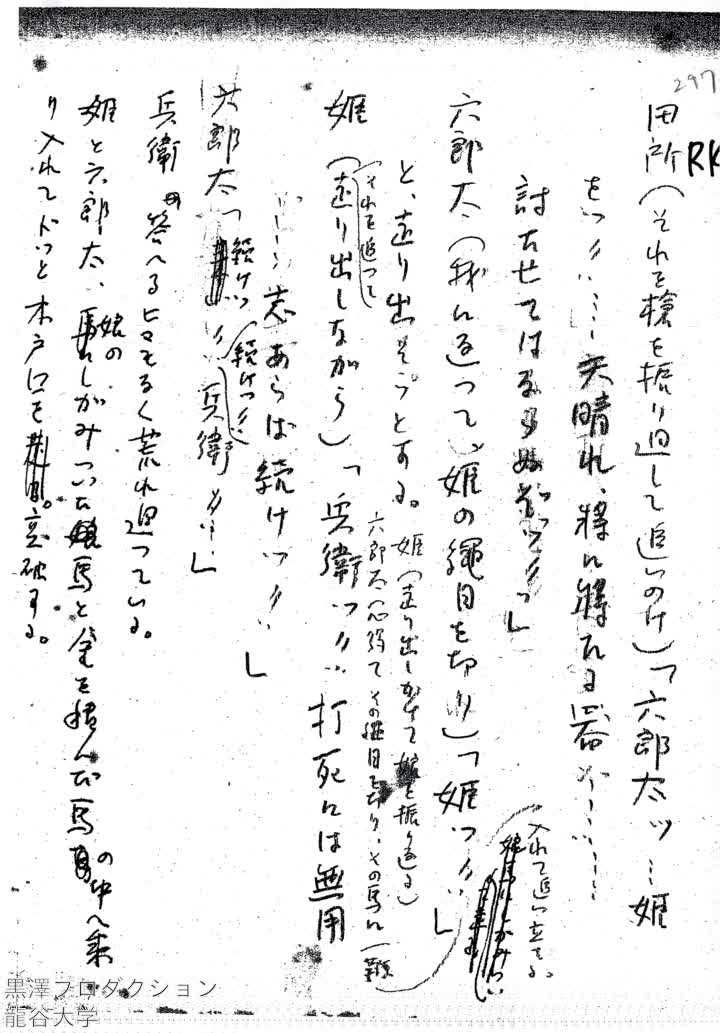 297
RK
田所(それを槍を振り廻して追いのけ)「六郎太ッ…姫
をッ!!…天晴れ、将に将たる器ぞ……
討たせてはならぬぞッ!!」
六郎太(我に返って、姫の縄目を切り)「姫ッ!!」
と、走り出そうとする。
姫(走り出しかけて娘を振り返る)
六郎太(心得てその縄目を切り、その馬に一鞭
入れて追い立てる。
(それを追って)
姫(走り出しながら)「兵衛ッ!! 打死には無用
志あらば続けッ!!」
六郎太「続けッ!! 兵衛!!」
(続けッ!!)
兵衛 答へるヒマもなく荒れ廻っている。
姫と六郎太、娘のしがみついた馬と金を積んだ馬の中へ乗
り入れてドッと木戸口を突破する。
黒澤プロダクション
龍谷大学